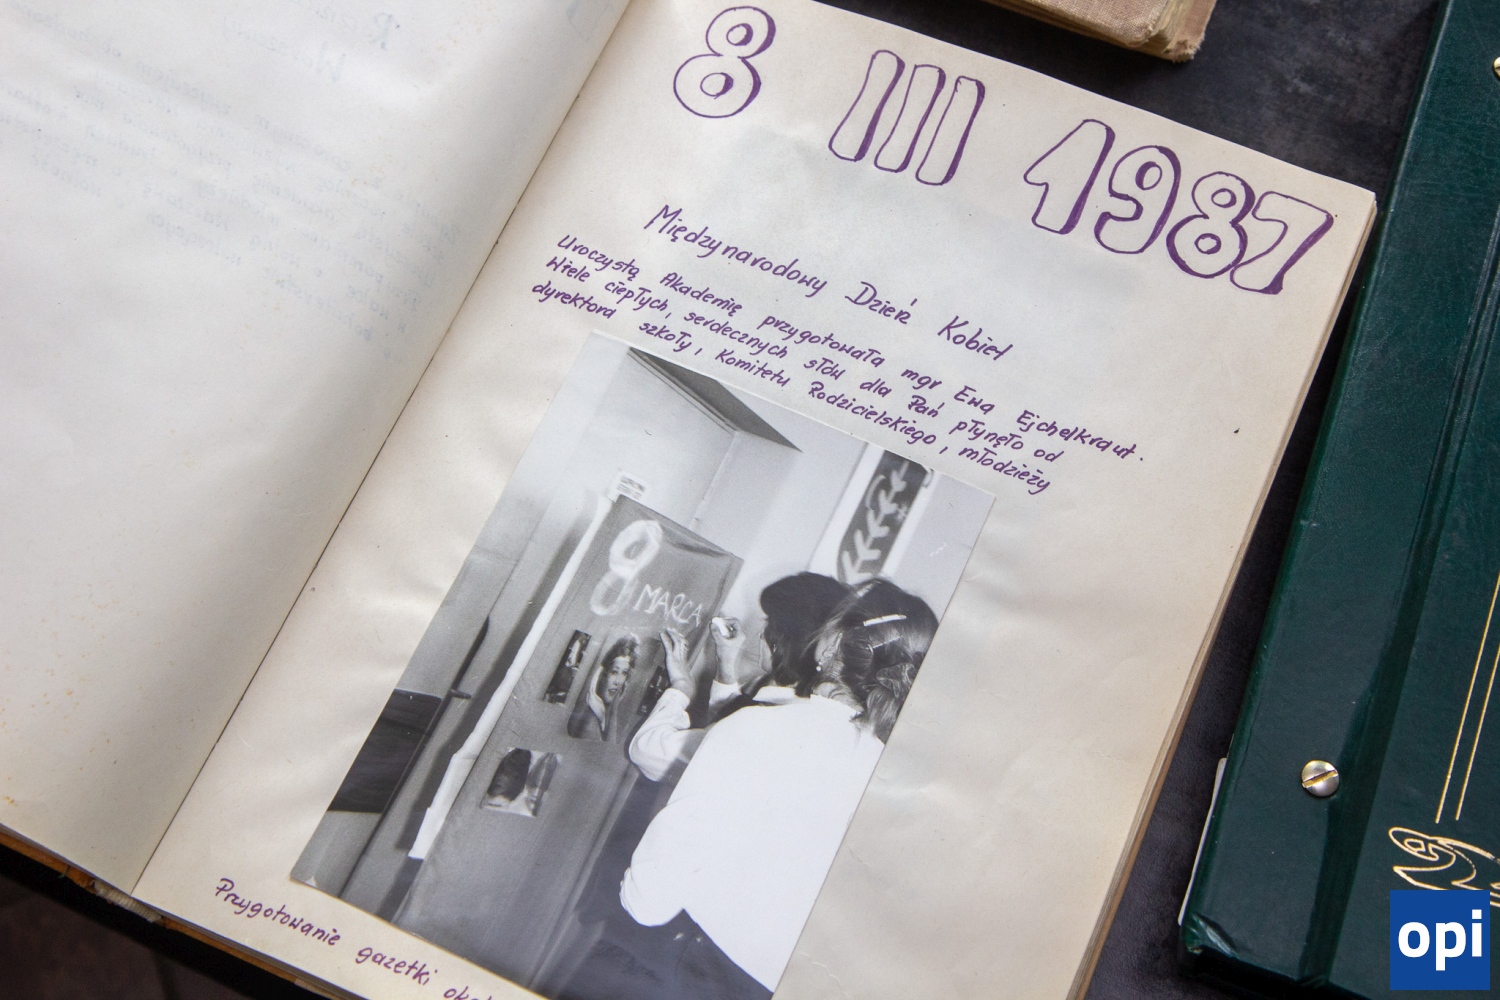 8 III 1987
Międzynarodowy Dzień Kobiet
Uroczystą Akademię przygotowała mgr, Ewa Ejchelkraut.
Wiele ciepłych, serdecznych słów dla Pań płynęło od
dyrektora szkoły, Komitetu Rodzicielskiego, młodzieży
8
MARCA
Przygotowanie gazetki
opi